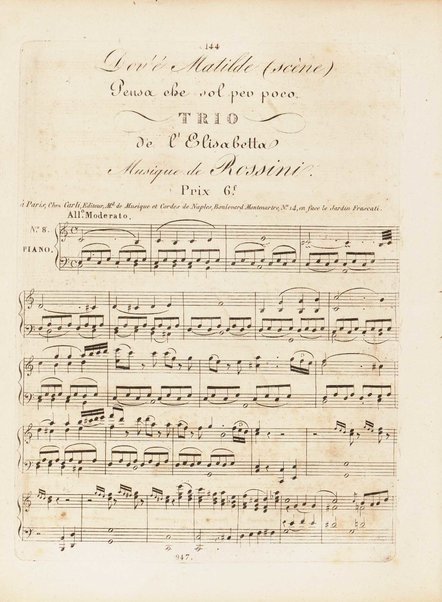 144
Dov'é Matilde (scène)
Pensa che sol per poco.
TRIO
de l'Elisabetta
Musique de Rossini.
Prix 6f.
à Paris, Chez Carli, Editeur, Md. de Musique et Cordes de Naples, Boulevard Montmartre, No. 14, en face le Jardin Frascati.
All°. Moderato.
No. 8.
PIANO.
947.